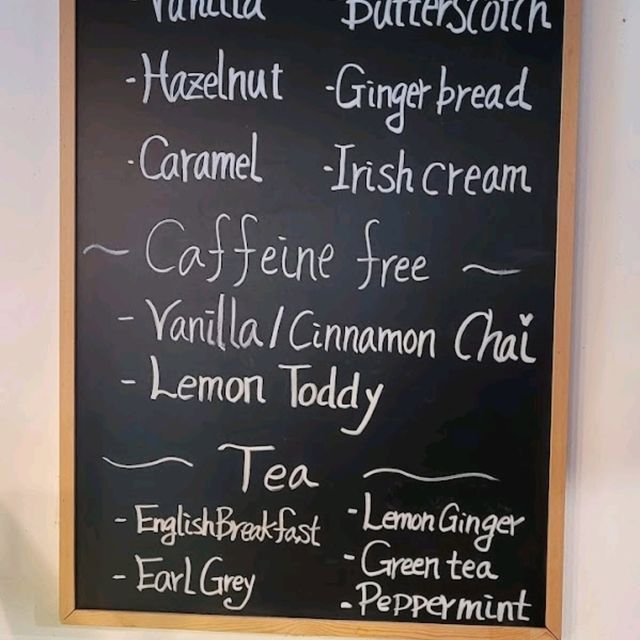 - Vanilla Butterscotch
- Hazelnut - Gingerbread
- Caramel - Irish cream
~ Caffeine free ~
- Vanilla / Cinnamon Chai
- Lemon Toddy
~ Tea ~
- English Breakfast - Lemon Ginger
- Earl Grey - Green tea
- Peppermint